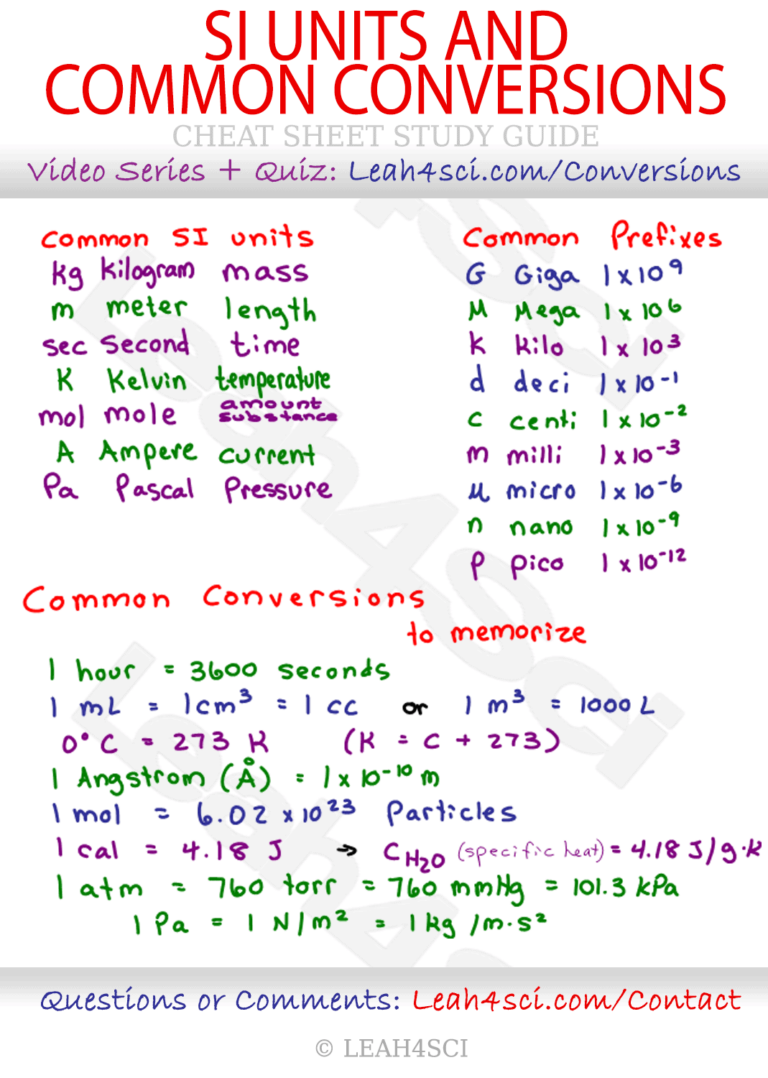 SI UNITS AND
COMMON CONVERSIONS
CHEAT SHEET STUDY GUIDE
Video Series + Quiz: Leah4sci.com/Conversions
Common SI units
kg kilogram mass
m meter length
sec Second time
K Kelvin temperature
mol mole amount substance
A Ampere current
Pa Pascal Pressure
Common Prefixes
G Giga 1 x 10⁹
M Mega 1 x 10⁶
k kilo 1 x 10³
d deci 1 x 10⁻¹
c centi 1 x 10⁻²
m milli 1 x 10⁻³
μ micro 1 x 10⁻⁶
n nano 1 x 10⁻⁹
p pico 1 x 10⁻¹²
Common Conversions
to memorize
1 hour = 3600 seconds
1 mL = 1cm³ = 1 cc or 1 m³ = 1000 L
0°C = 273 K (K = C + 273)
1 Angstrom (Å) = 1 x 10⁻¹⁰ m
1 mol = 6.02 x 10²³ Particles
1 cal = 4.18 J → C H₂O (specific heat) = 4.18 J/g·K
1 atm = 760 torr = 760 mmHg = 101.3 kPa
1 Pa = 1 N/m² = 1 kg/m·s²
Questions or Comments: Leah4sci.com/Contact
© LEAH4SCI
Leah4sci
Leah4sci